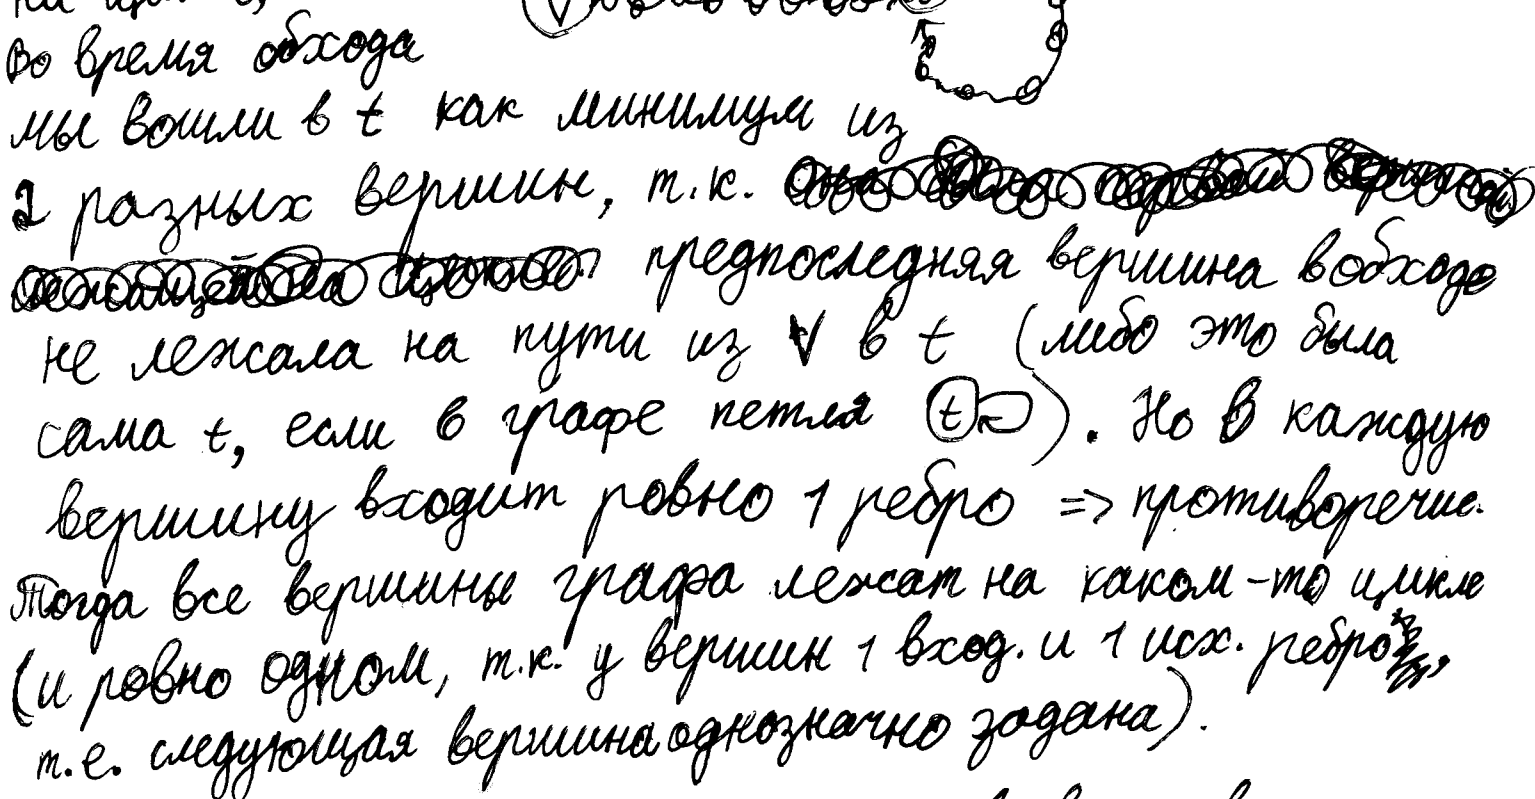 Во время обхода
мы вошли в t как минимум из
2 разных вершин, т.к.
предпоследняя вершина в обходе
не лежала на пути из V в t (либо это была
сама t, если в графе петля t). Но в каждую
вершину входит ровно 1 ребро => противоречие.
Тогда все вершины графа лежат на каком-то цикле
(и ровно одном, т.к. у вершин 1 вход. и 1 исх. ребро,
т.е. следующая вершина однозначно задана).